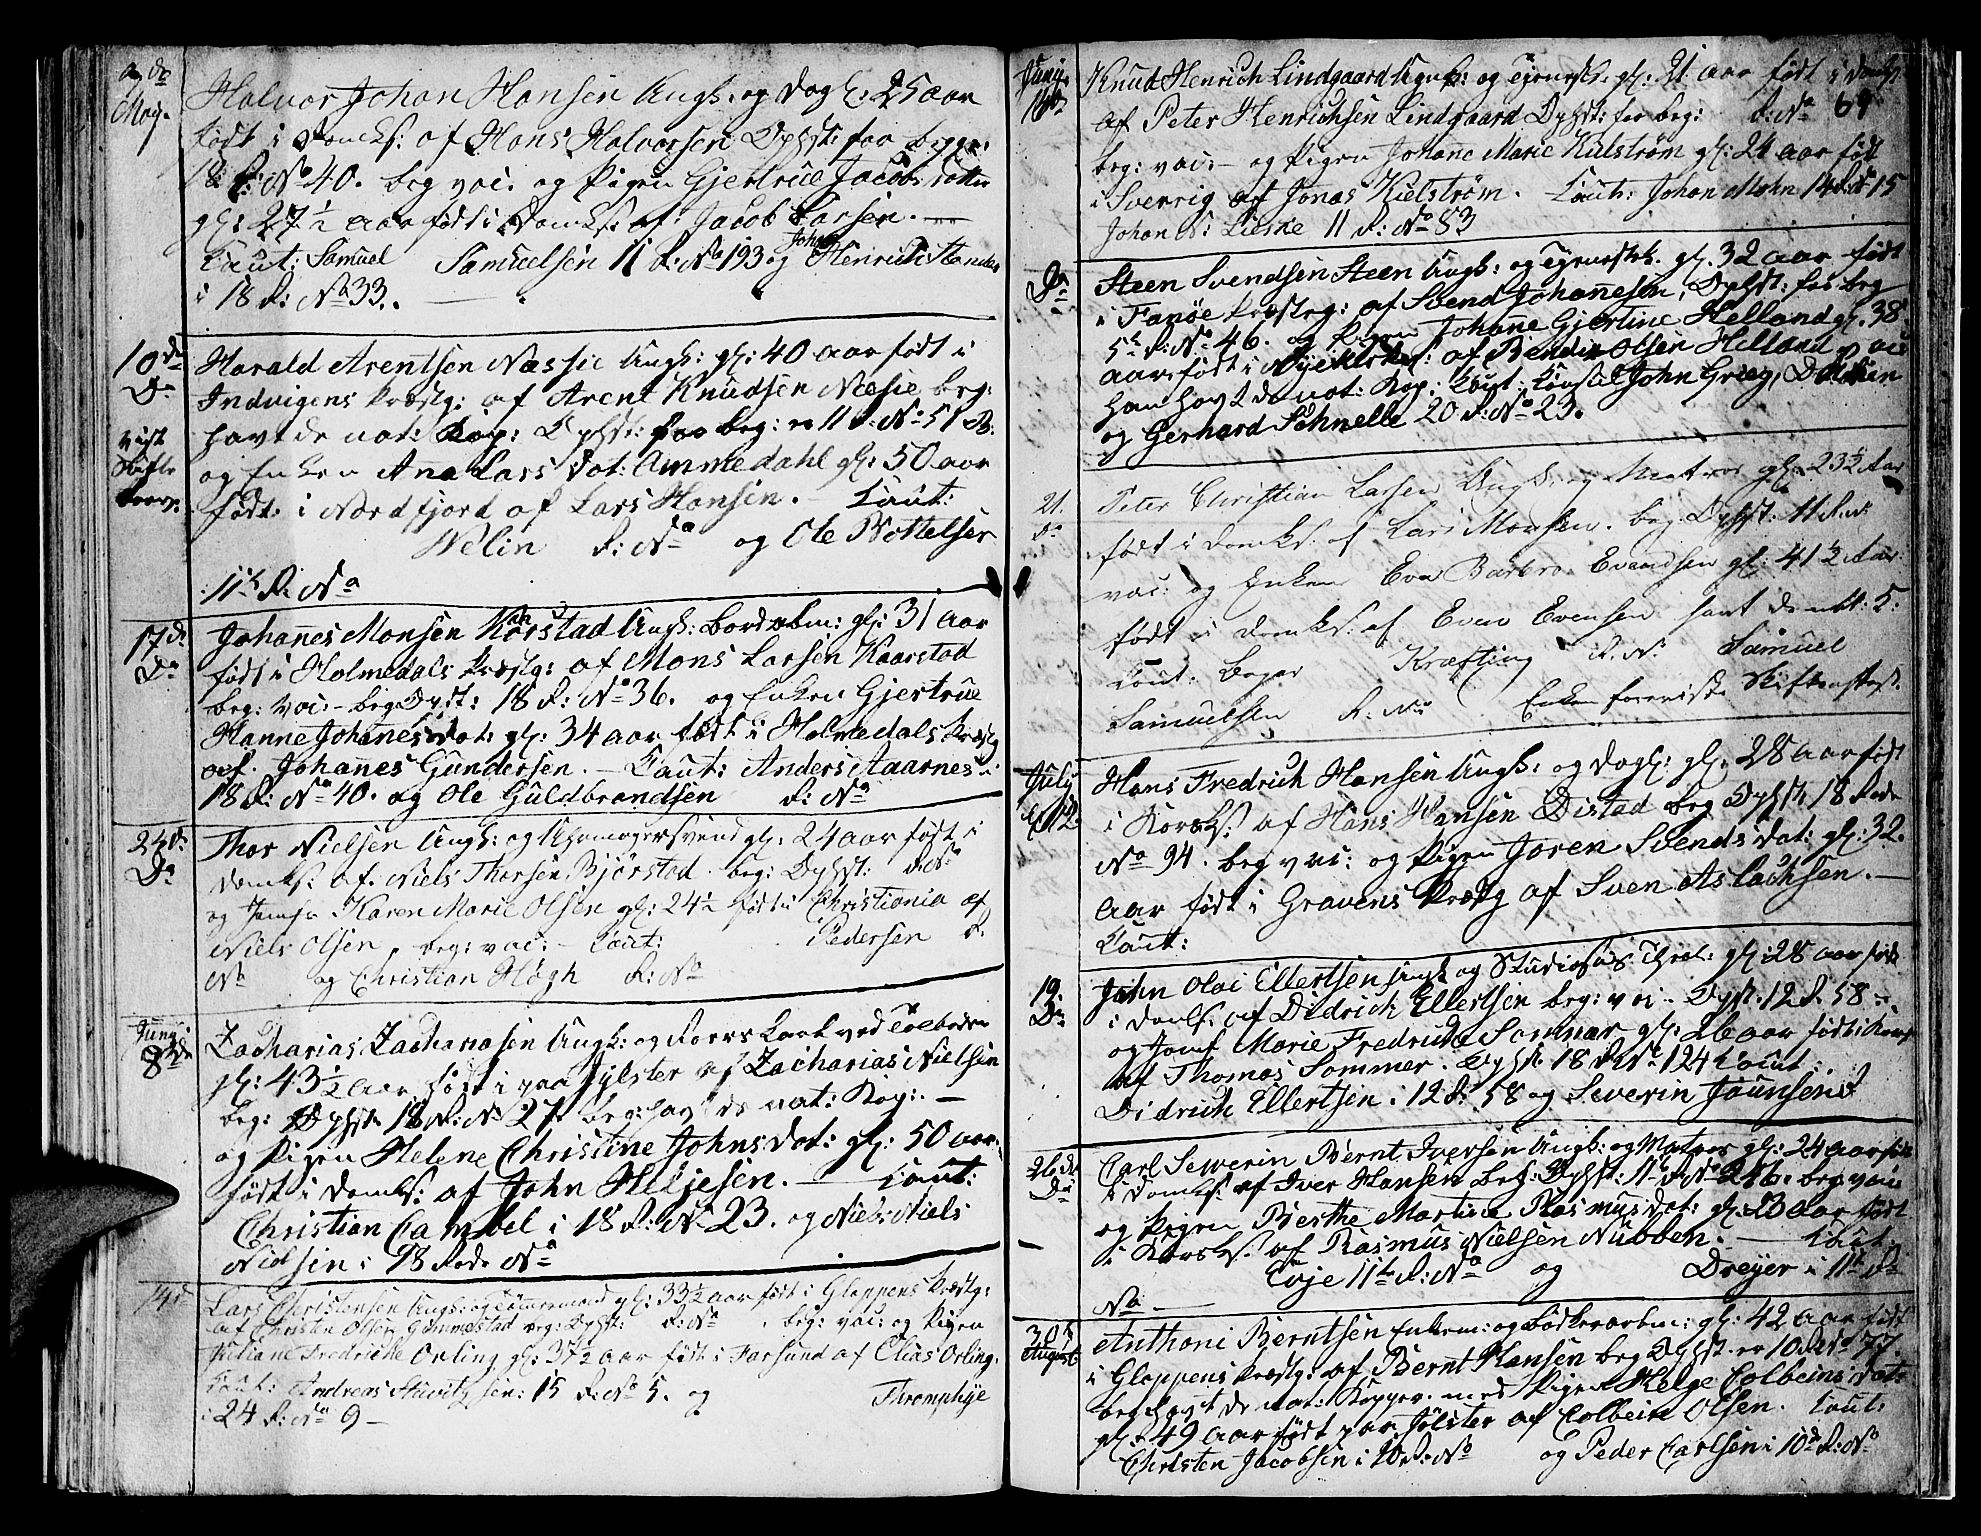 9 de
May.
Halvor Johan Hansen Ungk: og dagl: 25 aar
født i Domks: af Hans Halvorsen Ophst: for begge.
18 R: No 40. beg vac. og Pigen Gjertrue Jacobsdatter
gl: 27½ aar født i Domks: af Jacob Larsen. —
Caut: Samuel Samuelsen 11 R: No 193 og Johan Henrich
i 18 R: No 33.
10 de
Do
Harald Arentsen Næssie Ungk: gl: 40 aar født i
Indvigens Præstg: af Arent Knudsen Næsie beg:
havt de nat: Kop: Ophst: for beg: er 11 R: No 51 B.
og Enken Ana Larsdot: Ammedahl gl: 50 aar
født i Nordfjord af Lars Hansen. — Caut:
Welin R: No og Ole Bottelsen
11te R: No
17 de
Do
Johanes Monsen Kaarstad Ungk: Bordabm: gl: 31 aar
født i Holmedals Præstg: af Mons Larsen Kaarstad
beg: vac: – beg Ophst: 18 R: No 36. og Enken Gjertrue
Hanne Johanesdot: gl: 34 aar født i Holmedals Præstg
af. Johanes Gundersen. — Caut: Anders Aarnes i
18 R: No 40. og Ole Guldbrandsen R: No
24 de
Do
Thor Nielsen Ungk: og svend gl: 24 aar født i
Domks: af. Niels Thorsen Bjørstad. beg: Ophst: R: No
og Jomfr Karen Marie Olsen gl: 24½ født i Christiania af
Niels Olsen, beg: vac: – Caut: Pedersen R.
No og Christian Høgh R: No
Juny
8 de
Zacharias Zachariasen Ungk: og ved Toeboden
gl: 43½ aar født i paa Jylster af Zacharias Nielsen
beg: Ophst: 18 R: No 27. beg: havt de nat: Kop: —
og Pigen Helene Christine Johnsdot: gl: 50 aar
født i Domks: af John Heljesen. — Caut:
Christian Cambel i 18 R: No 23. og Niels Niels
Nielsen i 18 Rode No
14 de
Lars Christensen Ungk: og Tømremand gl: 33½ aar født i Gloppens Præstg:
af Christen Olsen Gommestad beg: Ophst: R: No . beg: vac: og Pigen
Juliane Fredricke Orling gl: 37½ aar født i Farsund af Elias Orling.
Caut: Andreas sen: 15 R: No 5. og Thromphje
i 24 R: No 9 –
Juny
69
Knud Henrich Lindgaard Ungk: og gl: 21 aar født i Domks:
af Peter Henrichsen Lindgaard Ophst: for beg: R: No
beg: vac: – og Pigen Johane Marie Kulstrøm gl: 24 aar født
i Sverrig af Jonas Kielstrøm. Caut: Johan Mohn 14 R: No 15
Johan N: Lieske 11 R: No 83
Do
Steen Svendsen Steen Ungk: og gl. 32 aar født
i Fanøe Præstg: af Svend Johannesen, Ophst: for beg
5te R: No 46. og Pigen Johane Gjertine Helland gl. 38
aar født i Nyekirken: af Bendix Olsen Helland, vac
han havt de nat: Kop: Caut: John Grieg,
og Gerhard Schnelle 20 R: No 23.
21.
Do
Peter Christian Larsen Ungk: og Matros gl: 23½ Aar
født i Domks: af Lars Monsen. beg: Ophst: 11 R: No
vac: og Enken Eva Barbro Evendsen gl: 41½ Aar
født i Domks: af Even Evensen havt de nat: 5:
Caut: Kræfting R: No: Samuel
Samuelsen R: No Enken foreviste Skifteattest.
July
12
Hans Fredrich Hansen Ungk: og dagl: gl: 28 aar født
i Korsks: af Hans Hansen Distad beg Ophst: 18 Rode
No 94. beg vac: og Pigen Joren Svendsdot: gl: 32.
aar født i Gravens Præstg af Sven Aslachsen. —
Caut:
19.
Do
John Olai Ellertsen Ungk og Studiosus Theol: gl: 28 aar født
i Domks: af Didrich Ellertsen beg: vac – Ophst. 12 R. 58 —
og Jomf Marie Fredricke Sommer gl: 26 aar født i
af Thomas Sommer. Ophst: 18 R: No 124 Caut:
Didrich Ellertsen i 12 R: 58 og Severin Jaunsen R
26 de
Do
Carl Severin Bernt Iversen Ungk: og Matros gl: 24 aar født
i Domks: af Iver Hansen beg: Ophst: 11te R: No 246. beg: vac:
og Pigen Berthe Martine Rasmusdot: gl: 23 aar født
i Korsks: af Rasmus Nielsen Nubben. — Caut:
Evje 11te R: No og Dreyer i 11te R:
No —
30 te
August
Anthoni Berntsen Enkem: og Bødkerarbm: gl: 42 aar født
i Gloppens Præstg: af Bernt Hansen beg Ophst. er 10 R: No 77.
beg havt de nat: Kopper. med Pigen Helge Colbeinsdot:
gl: 49 aar født paa Jølster af Colbein Olsen. Caut:
Christen Jacobsen i 10 R: No og Peder Carlsen i 10de R: No